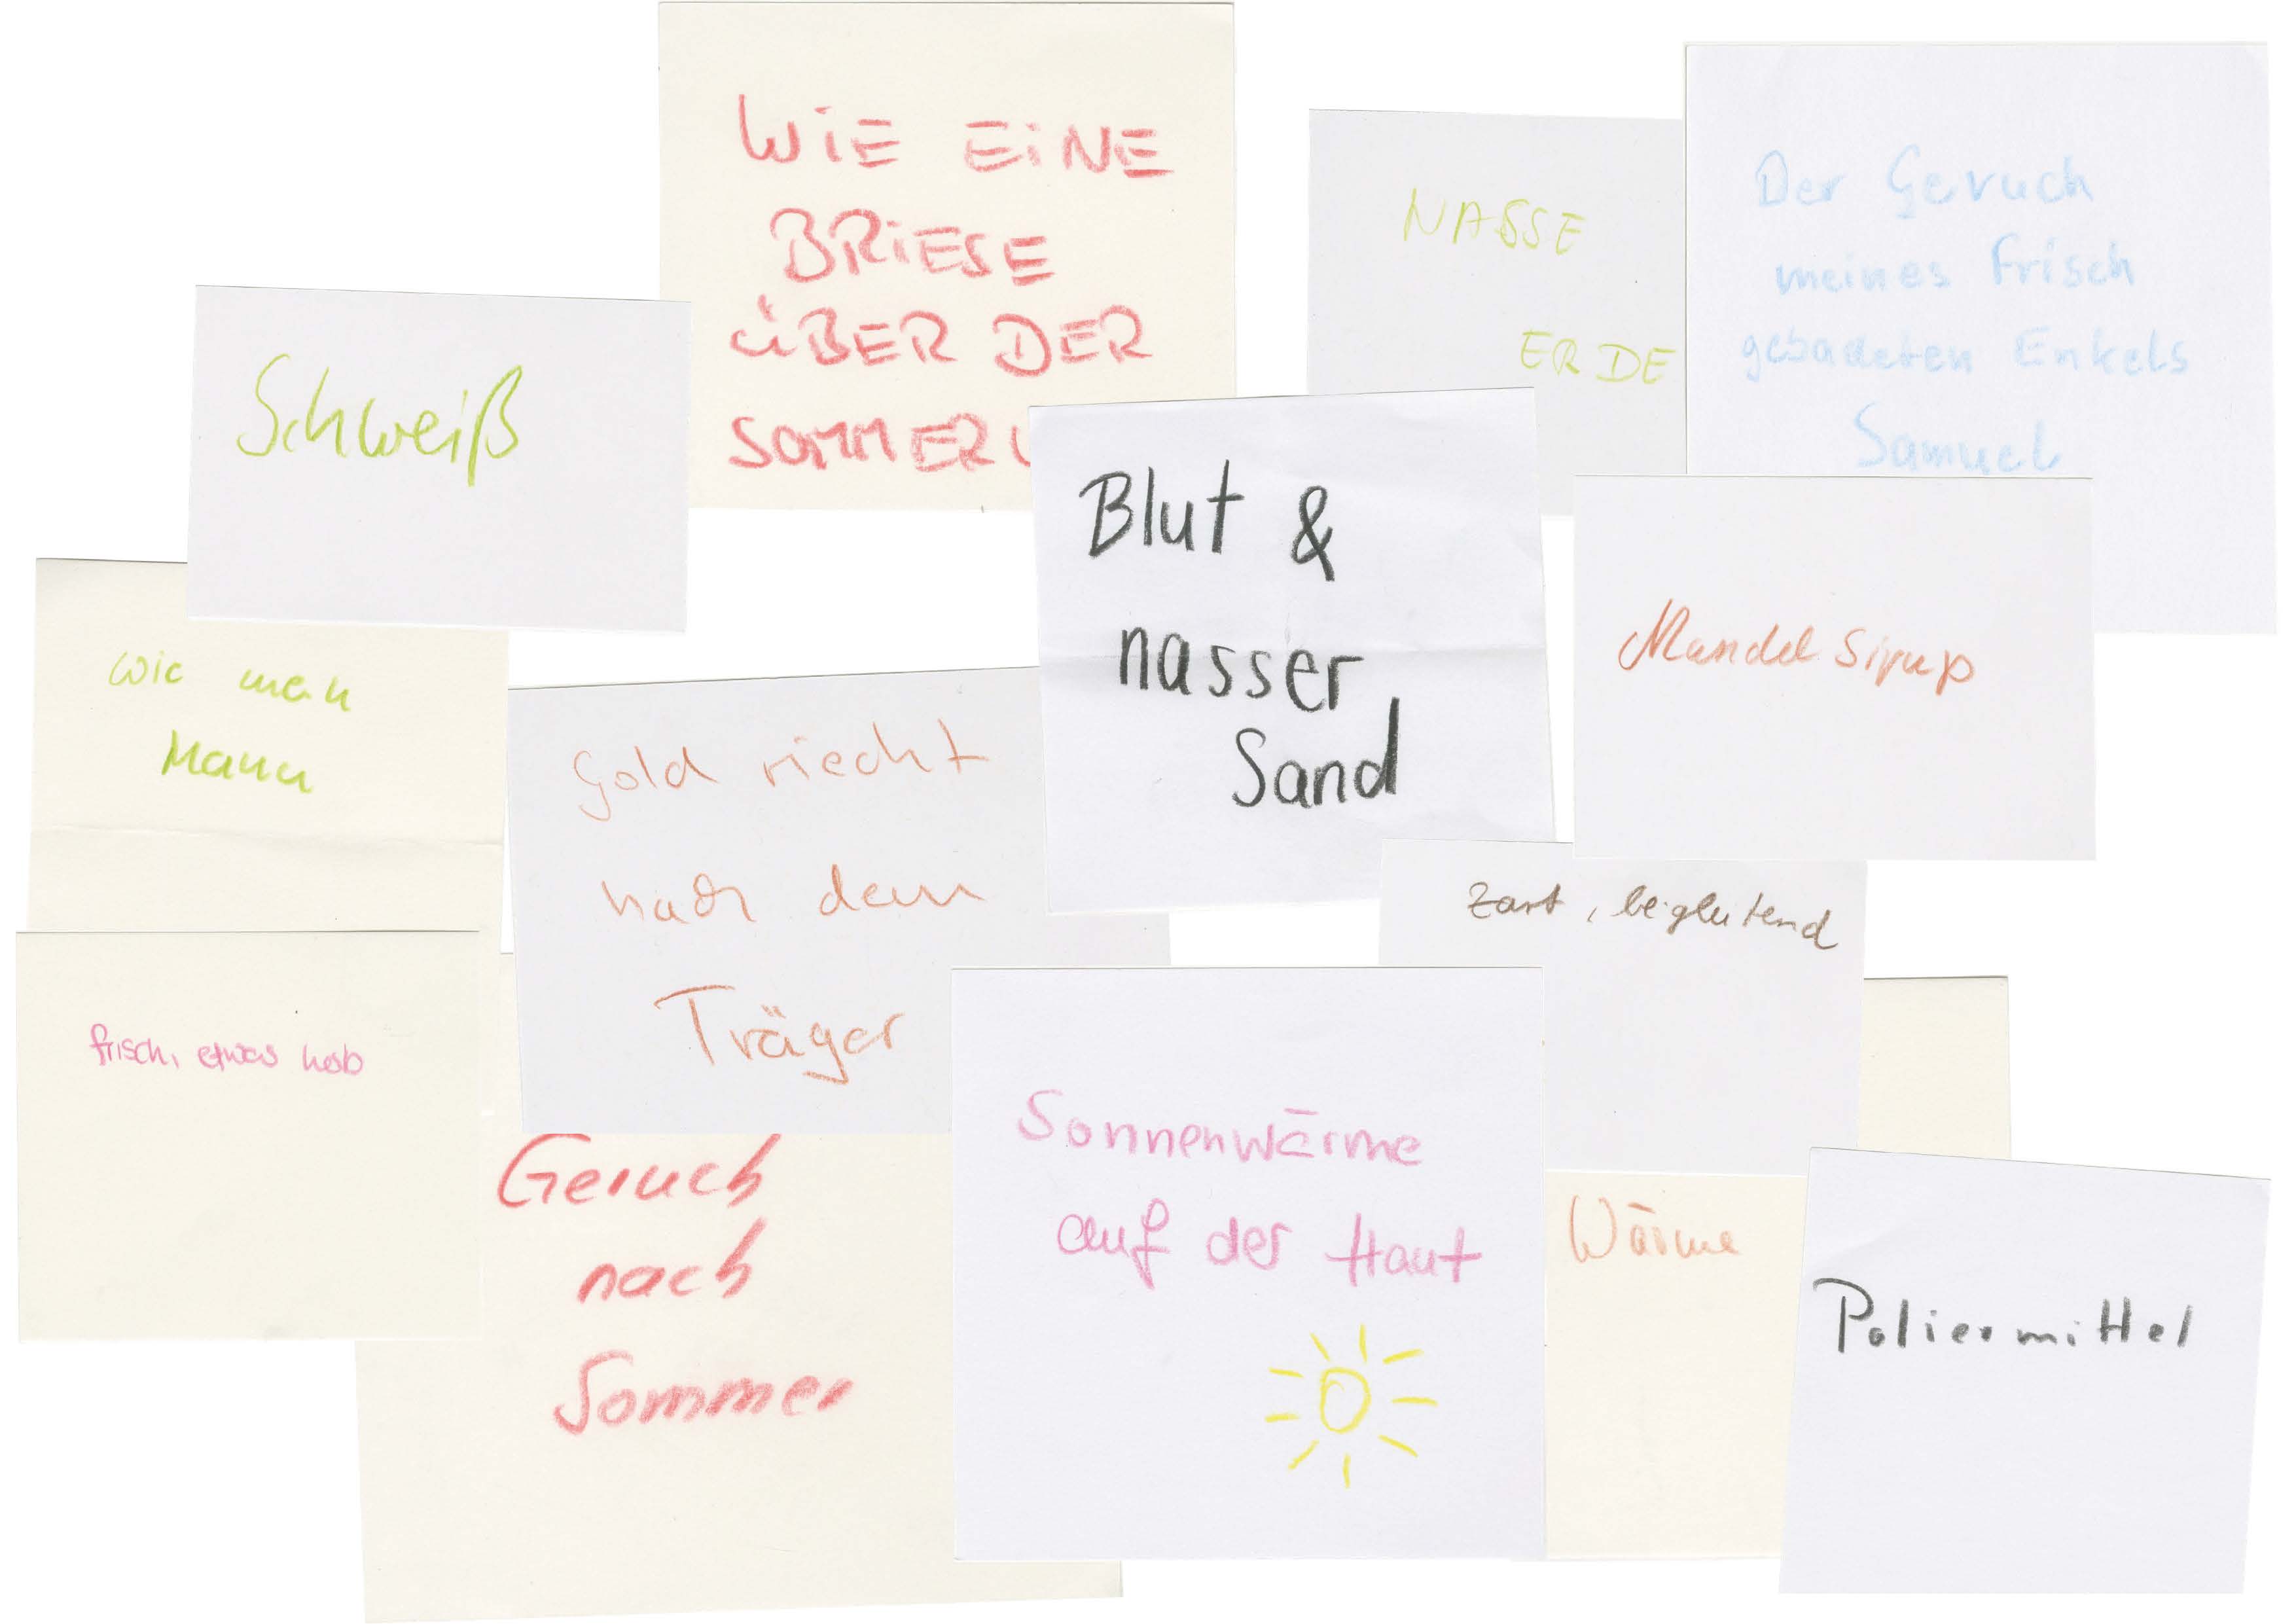 WIE EINE
BRIESE
ÜBER DER
SOMMER
NASSE
ERDE
Der Geruch
meines frisch
gebadeten Enkels
Samuel
Schweiß
Blut &
nasser
Sand
Mandel Sirup
wie mein
Mann
Gold riecht
nach dem
Träger
zart, begleitend
frisch, etwas herb
Geruch
nach
Sommer
Sonnenwärme
auf der Haut
Wärme
Poliermittel